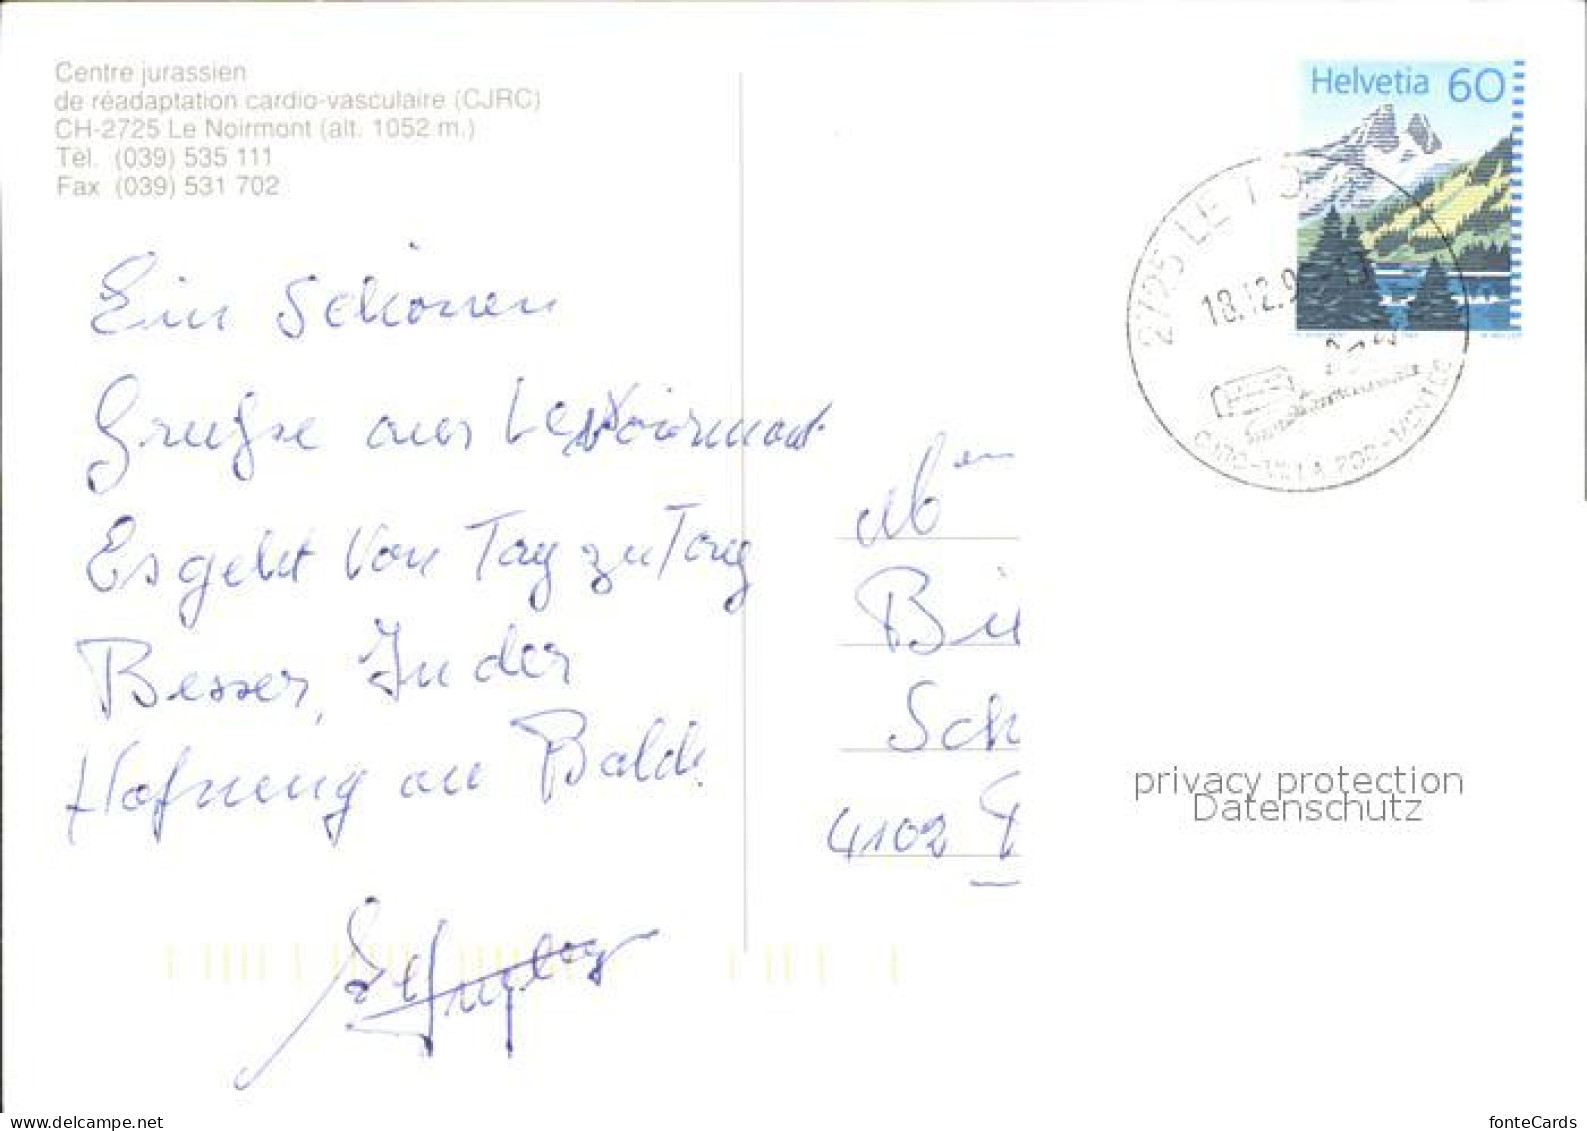 Centre jurassien
de réadaptation cardio-vasculaire (CJRC)
CH-2725 Le Noirmont (alt. 1052 m.)
Tél. (039) 535 111
Fax (039) 531 702
Helvetia 60
2725 LE
18.12.9
Ein Schönen
Grusse aus Le Noirmont
Es geht Von Tag zu Tag
Besser, In der
Hofnung an Bald.
Sch
4102
privacy protection
Datenschutz
www.delcampe.net
fonteCards